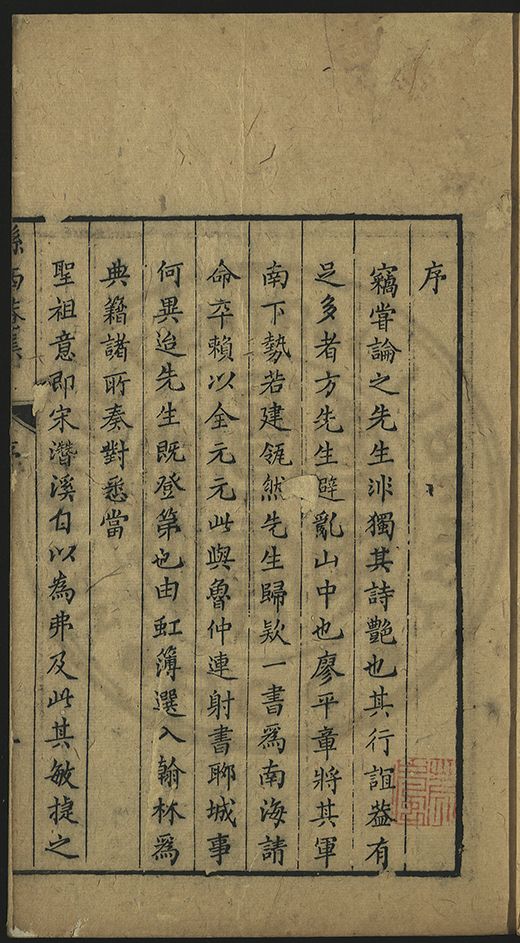 序
竊嘗論之先生非獨其詩艷也其行誼葢有
足多者方先生避亂山中也廖平章將其軍
南下勢若建瓴然先生歸欵一書爲南海請
命卒賴以全元元此與魯仲連射書聊城事
何異迨先生既登第也由虹簿選入翰林爲
典籍諸所奏對悉當
聖祖意即宋濳溪自以為弗及此其敏捷之
孫西菴集
序